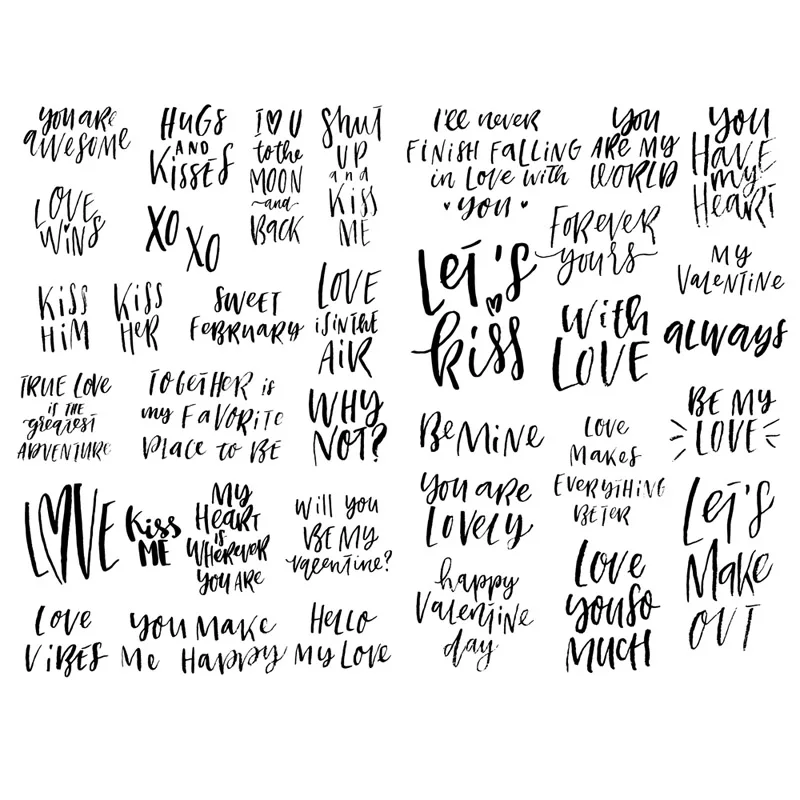 you are
awesome
HUGS
AND
KISSES
I ♥ U
to the
MOON
~and~
BACK
Shut
UP
and
KISS
ME
LOVE
WINS
XO
XO
KISS
HIM
KISS
HER
SWEET
FEBRUARY
LOVE
IS IN THE
AIR
TRUE LOVE
IS THE
greatest
ADVENTURE
TOGETHER is
my FAVORITE
PLACE to BE
WHY
NOT?
LOVE
Kiss
ME
MY
HEART
IS
WHEREVER
YOU ARE
Will you
BE MY
valentine?
LOVE
VIBES
YOU MAKE
Me HAPPY
HELLO
MY LOVE
I'll never
FINISH FALLING
in Love with
• you •
YOU
ARE MY
WORLD
YOU
HAVE
my
HEART
FOREVER
yours
LET'S
kiss
MY
VALENTINE
With
LOVE
always
BE MINE
LOVE
MAKES
EVERYTHING
BETTER
BE MY
LOVE
YOU ARE
LOVELY
LET'S
MAKE
OUT
happy
Valentine
day
Love
you so
MUCH